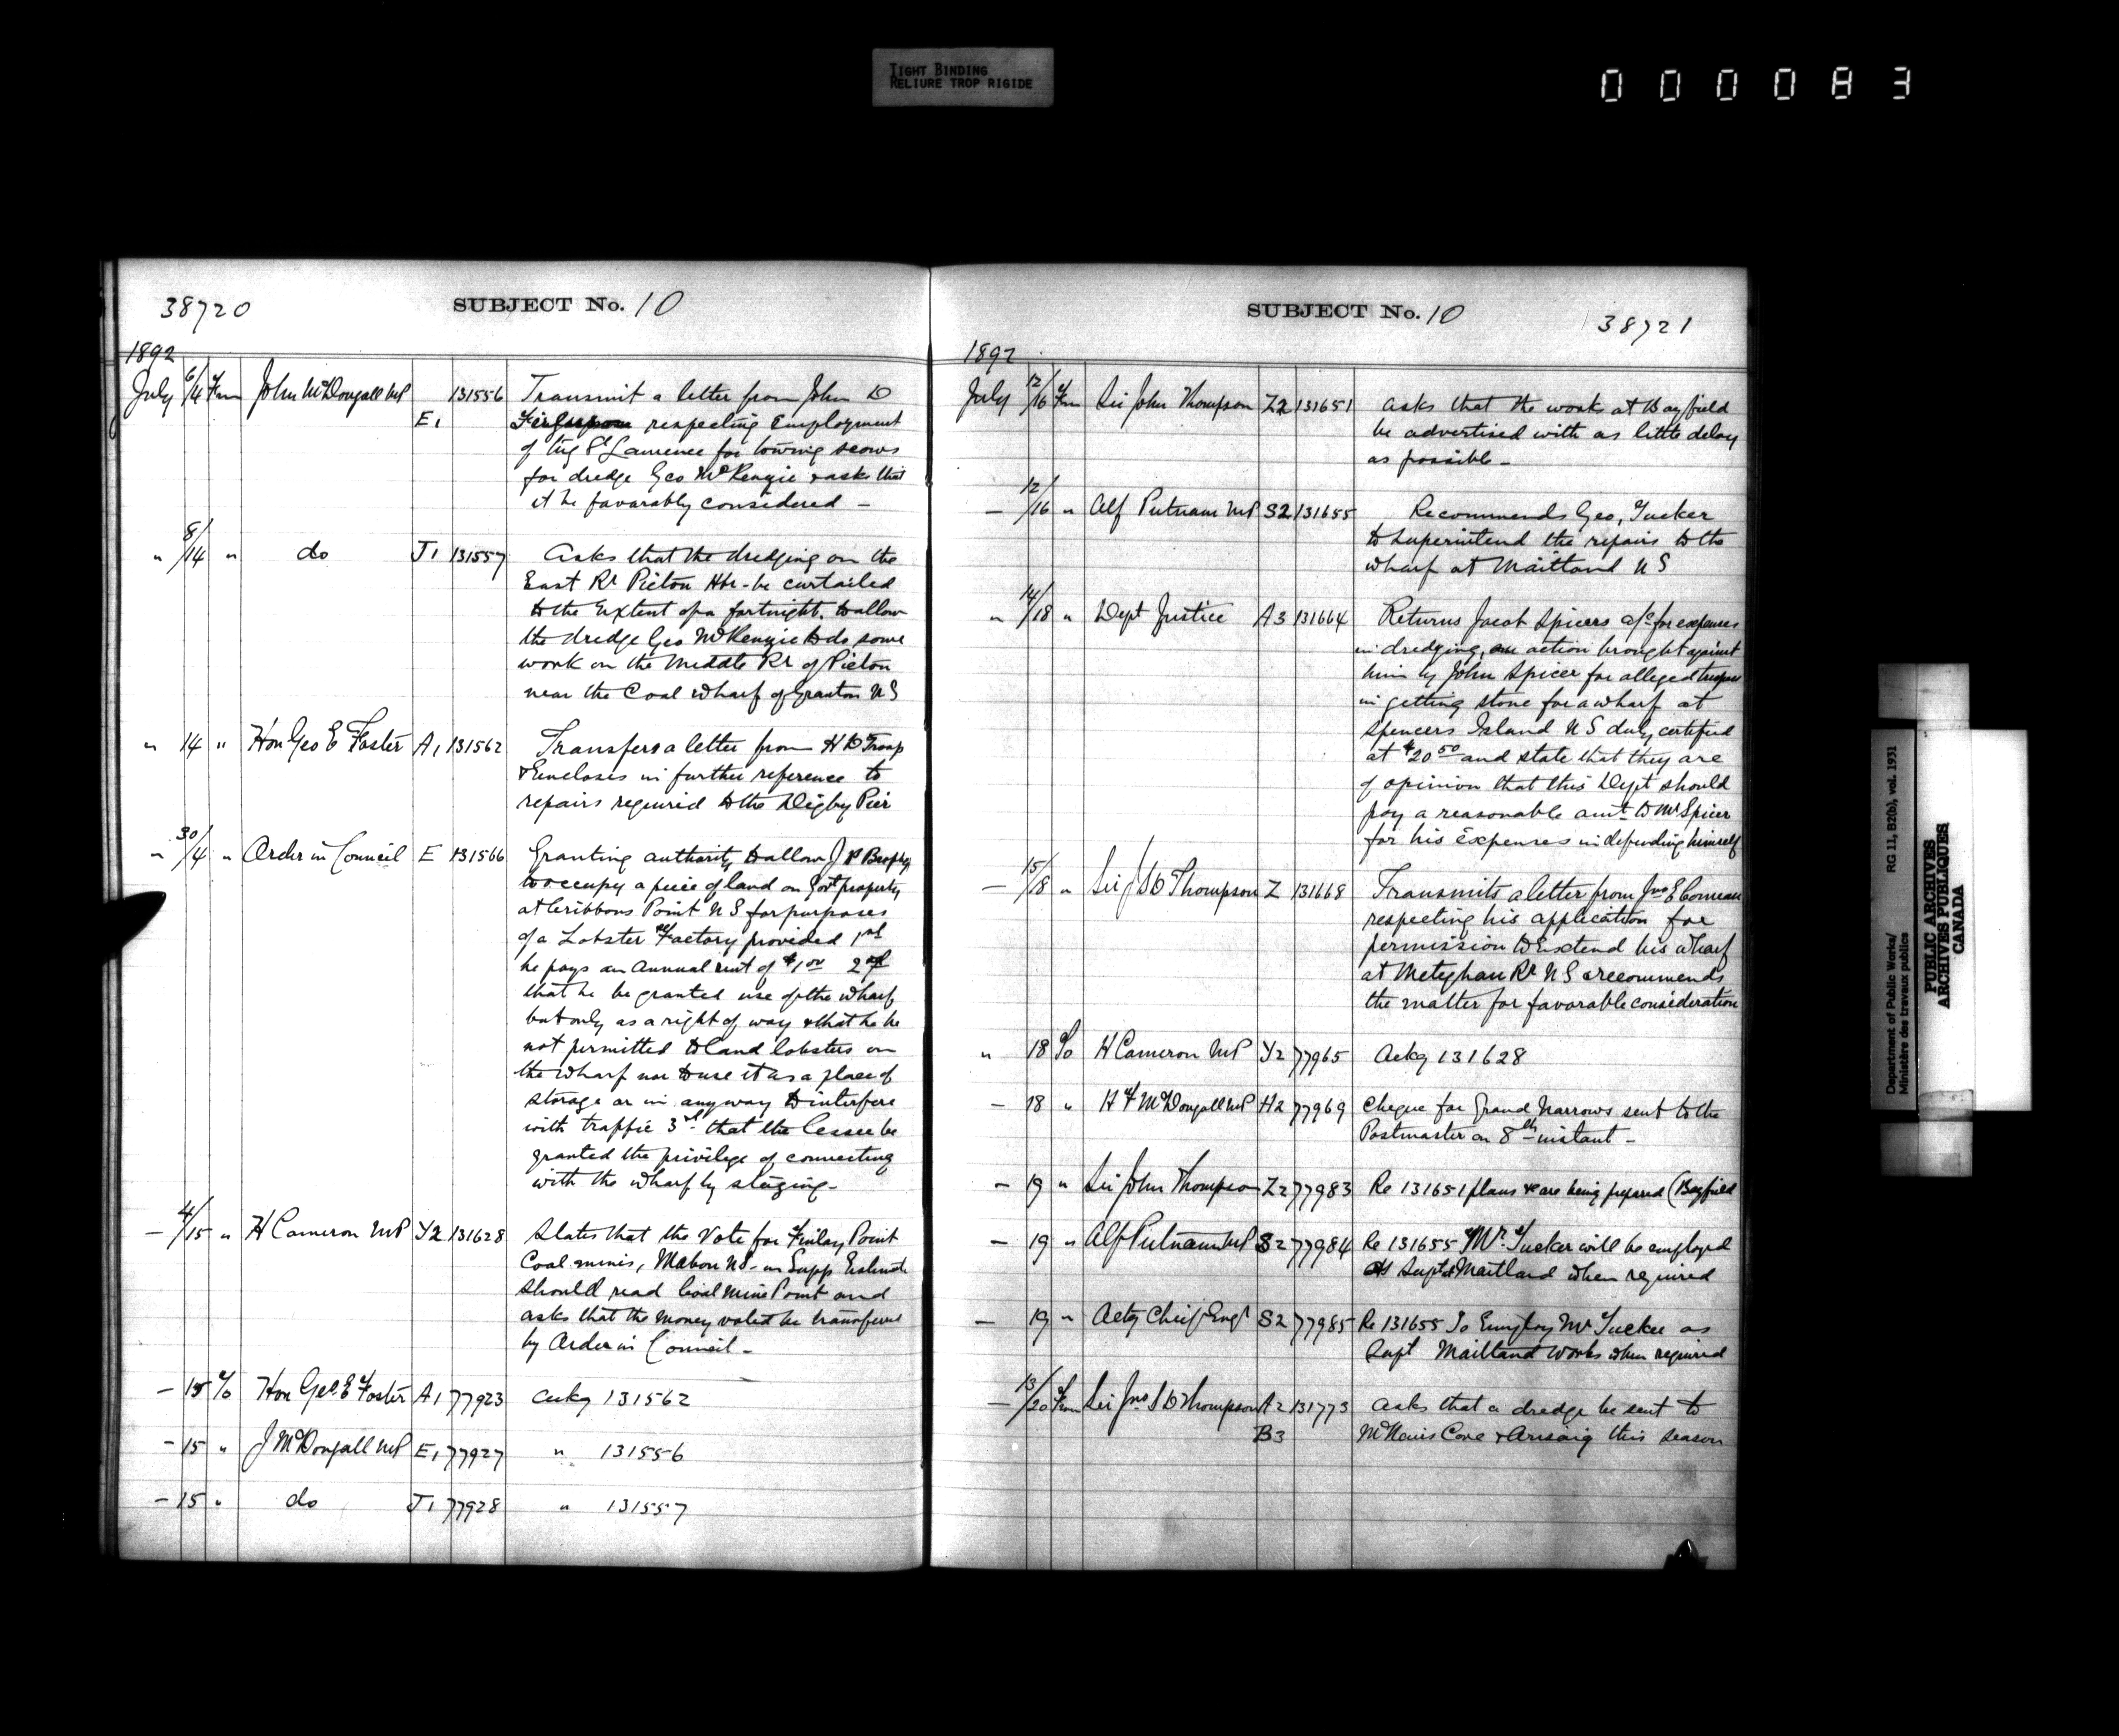 TIGHT BINDING
RELIURE TROP RIGIDE
000083
38720
SUBJECT No. 10
1892
July 6/14 Fm John McDougall MP E1 131556 Transmit a letter from John D
respecting Employment
of tug St Lawrence for towing scows
for dredge Geo McKenzie & asks that
it be favorably considered –
" 8/14 " do J1 131557 Asks that the dredging on the
East Rr Pictou Hbr - be curtailed
to the Extent of a fortnight, to allow
the dredge Geo McKenzie to do some
work on the Middle Rr of Pictou
near the Coal wharf of Granton N S
" 14 " Hon Geo E Foster A1 131562 Transfers a letter from H D Troop
& Encloses in further reference to
repairs required to the Digby Pier
" 30/4 " Order in Council E 131566 Granting authority to allow J P Brophy
to occupy a piece of land on Govt property
at Cribbons Point N S for purposes
of a Lobster Factory provided 1st
he pays an Annual rent of $1.00 2nd
that he be granted use of the wharf
but only as a right of way & that he be
not permitted to land lobsters on
the wharf nor to use it as a place of
storage or in anyway to interfere
with traffic 3rd that the Lessee be
granted the privilege of connecting
with the wharf by staging -
– 4/15 " H Cameron MP Y2 131628 States that the Vote for Finlay Point
Coal mines, Mabou NS - in Supp Estimate
should read Coal Mine Point and
asks that the money voted be transferred
by Order in Council –
– 15 To Hon Geo E Foster A1 77923 Ackg 131562
– 15 " J McDougall MP E1 77927 " 131556
– 15 " do J1 77928 " 131557
SUBJECT No. 10
38721
1892
July 12/16 Fm Sir John Thompson Z2 131651 Asks that the works at Bayfield
be advertised with as little delay
as possible –
– 12/16 " Alf Putnam MP S2 131655 Recommends Geo, Tucker
to superintend the repairs to the
wharf at Maitland N S
" 14/18 " Dept Justice A3 131664 Returns Jacob Spicers a/c for expenses
in dredging, an action brought against
him by John Spicer for alleged trespass
in getting stone for a wharf at
Spencers Island N S duly certified
at $20.50 and state that they are
of opinion that this Dept should
pay a reasonable amt to Mr Spicer
for his Expenses in defending himself
– 15/18 " Sir J S D Thompson Z 131668 Transmits a letter from Jno E Comeau
respecting his application for
permission to Extend his wharf
at Meteghan Rr N S & recommends
the matter for favorable consideration
" 18 To H Cameron MP Y2 77965 Ackg 131628
– 18 " H F McDougall MP H2 77969 Cheque for Grand Narrows sent to the
Postmaster on 8th instant –
– 19 " Sir John Thompson Z2 77983 Re 131651 plans &c are being prepared (Bayfield
– 19 " Alf Putnam MP S2 77984 Re 131655 Mr Tucker will be employed
as Supt Maitland when required
– 19 " Actg Chief Engr S2 77985 Re 131655 To Employ Mr Tucker as
Supt Maitland Works when required
– 13/20 Fm Sir Jno S D Thompson A2 131773 Asks that a dredge be sent to
B3 McNairs Cove & Arisaig this season
Department of Public Works/ RG 11, B2(b), vol. 1931
Ministère des travaux publics
PUBLIC ARCHIVES
ARCHIVES PUBLIQUES
CANADA